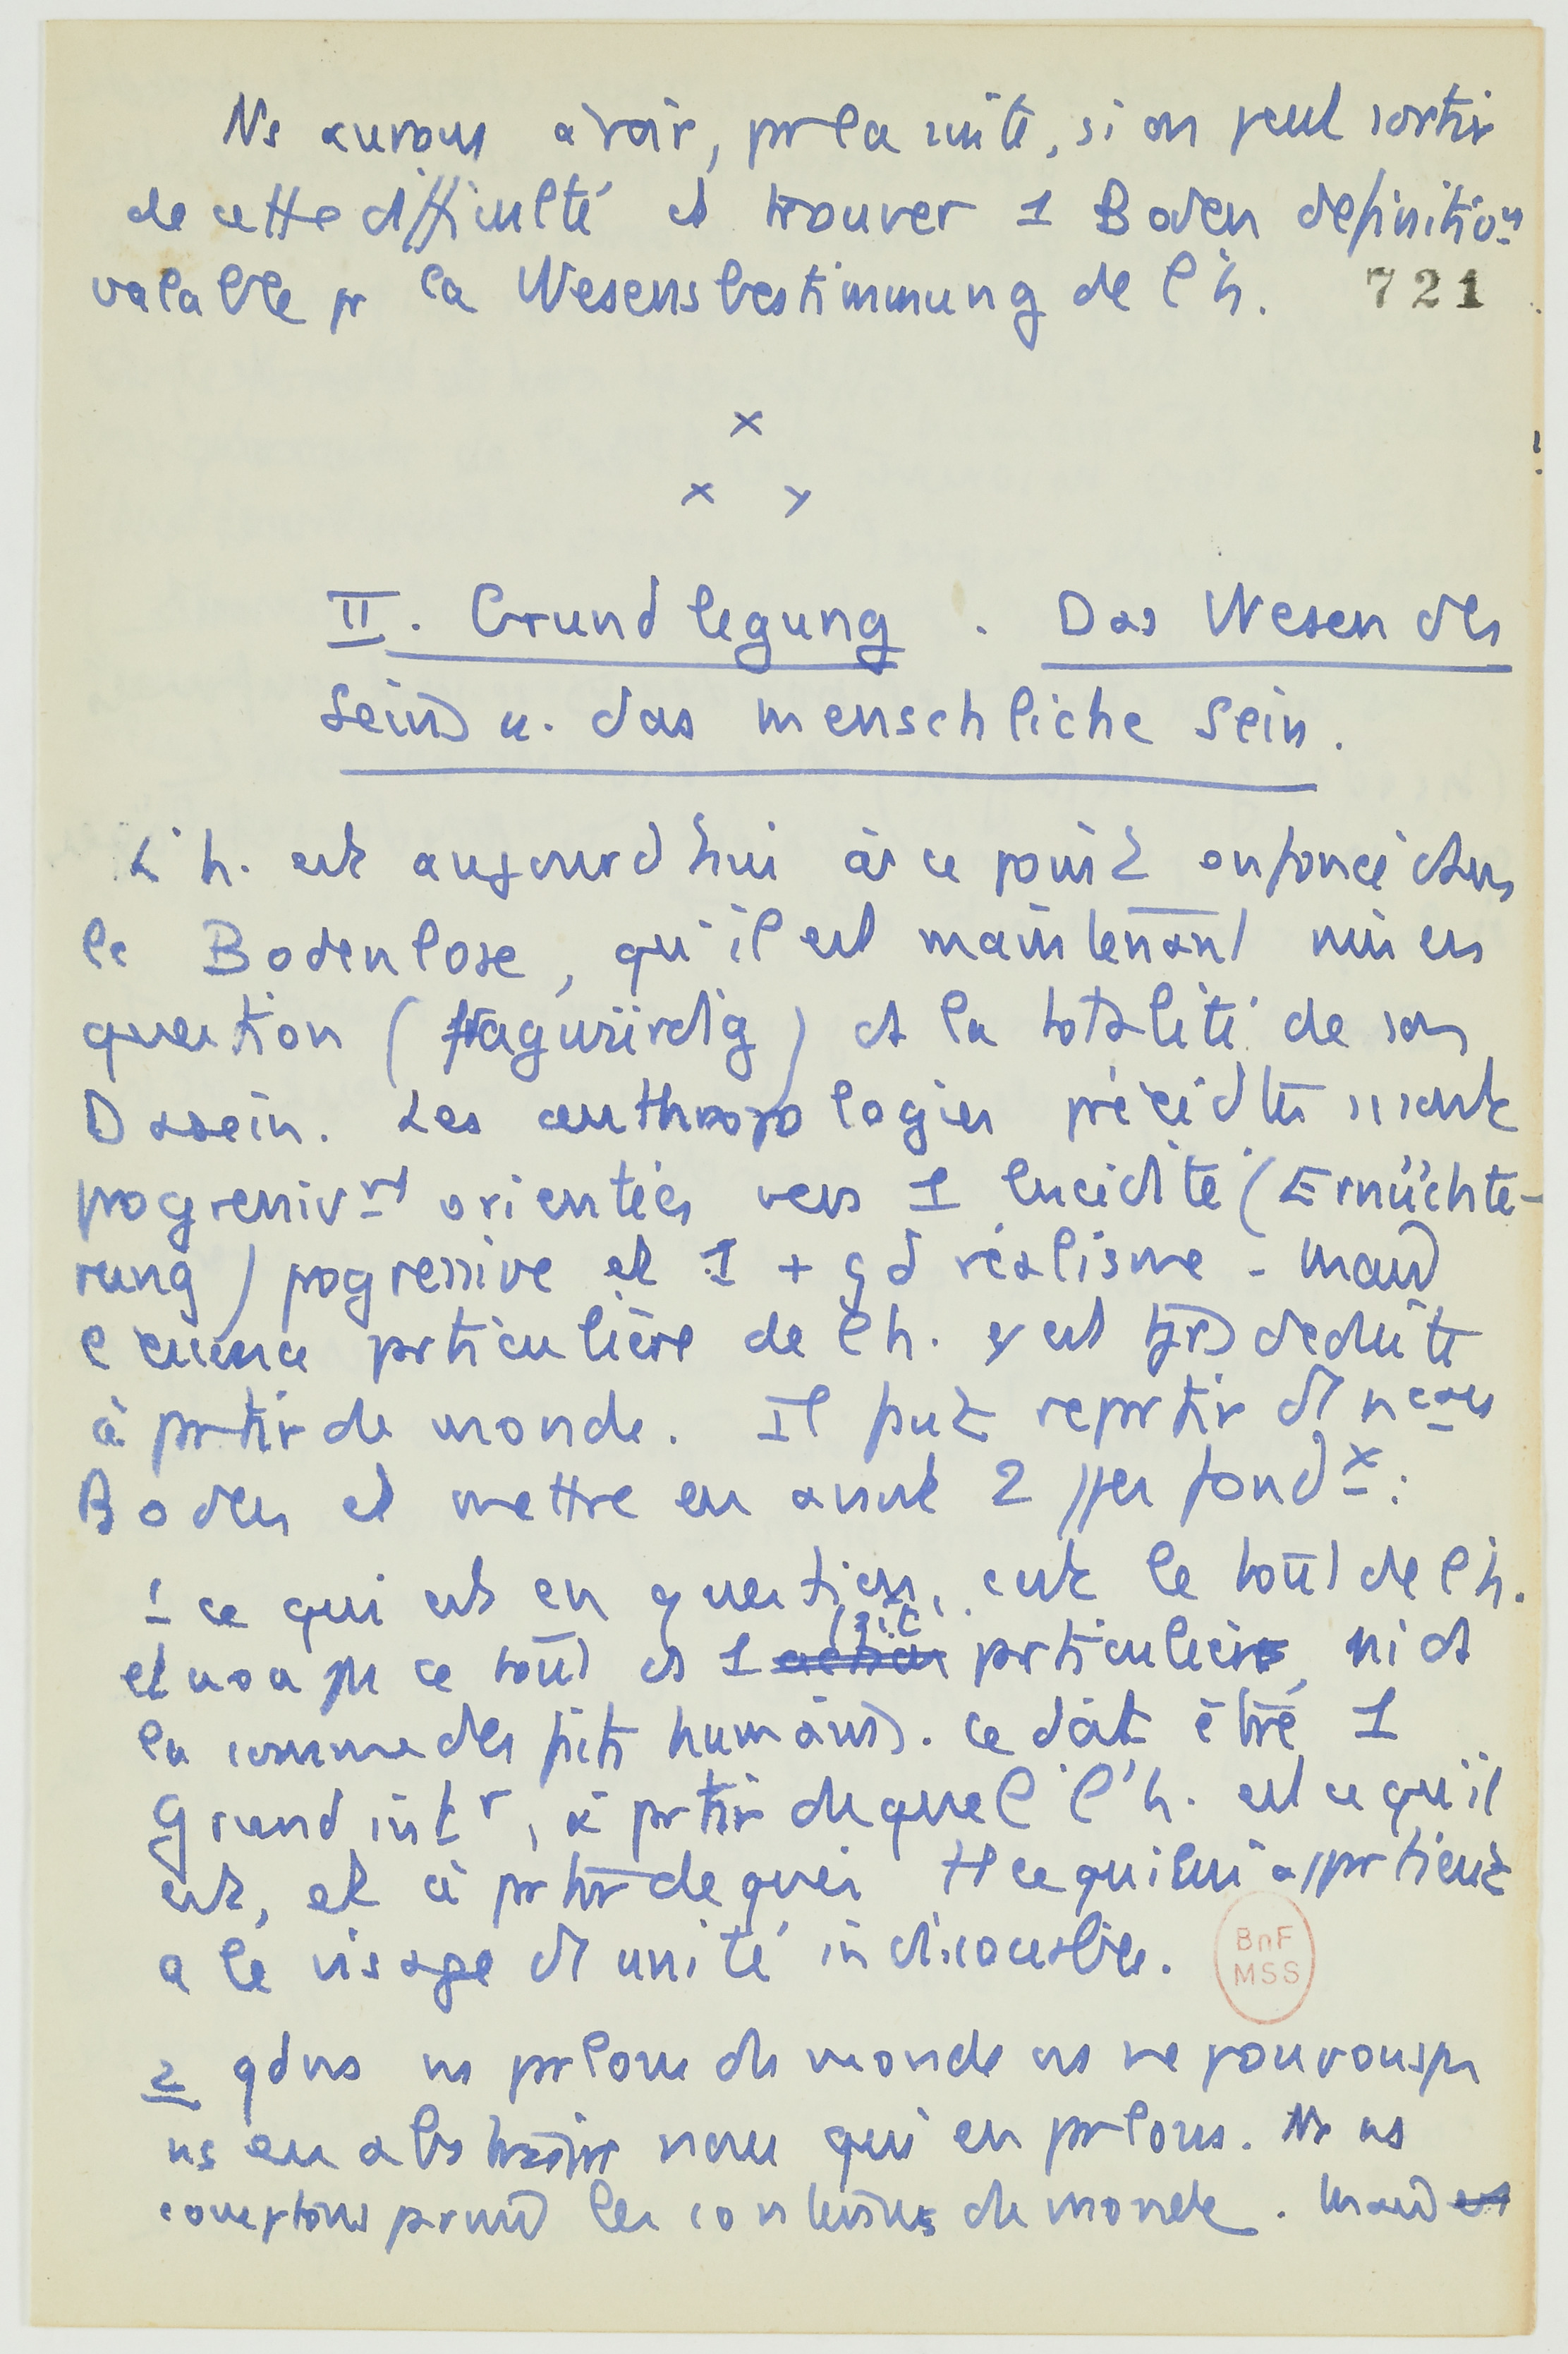 Ns aurons à voir, pr la suite, si on peut sortir
de cette difficulté et trouver 1 Boden définitivt
valable pr la Wesensbestimmung de l'h. 721
x
x x
II. Grundlegung. Das Wesen des
Seins u. das menschliche Sein.
L'h. est aujourd'hui à ce point enfoncé dans
le Bodenlose, qu'il est maintenant mis en
question (fragwürdig) ds la totalité de son
Dasein. Les anthropologies précédtes st
progressivnt orientées vers 1 lucidité (Ernüchte-
rung) progressive et 1 + gd réalisme - Mais
l'essence prticulière de l'h. y est tjrs déduite
à prtir de monde. Il faut reprtir d'1 nveau
Boden et mettre en avant 2 ppes fondx :
1 ce qui est en question, c'est le tout de l'h.
et non ps ce tout ds 1 prticulière, ni ds
la somme des faits humains. Ce doit être 1
Grund intr, à prtir duquel l'h. est ce qu'il
est, et à prtir de quoi tt ce qui lui apprtient
a le visage d'1 unité indissociable.
BnF
MSS
2 qd ns prlons du monde ns ne pouvons ps
ns en abstraire nous qui en prlons. Ns ns
comptons prmi les contenus du monde. Mais